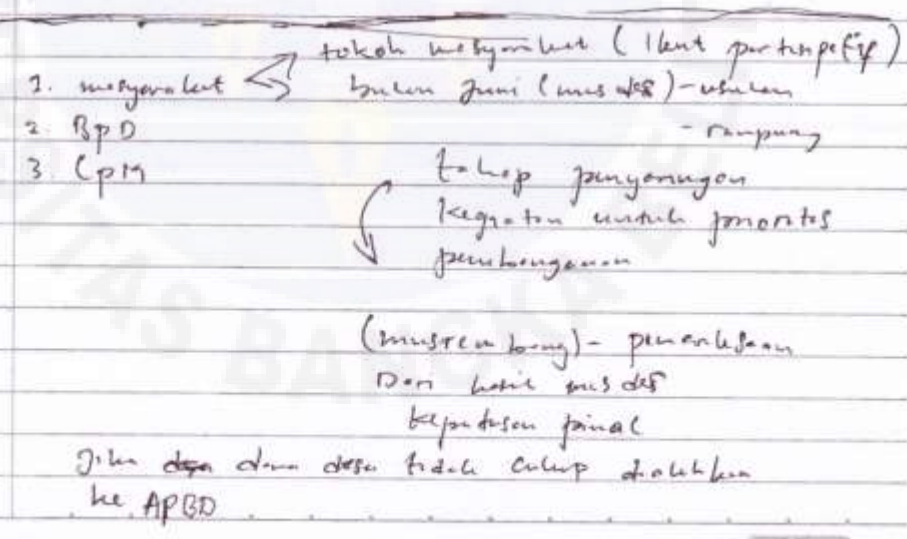 tokoh masyarakat (Ikut partisipatif)
1. masyarakat
bulan Juni (musdes) - usulan
2. BPD
- rampung
3. LPM
tahap penyaringan
kegiatan untuk prioritas
pembangunan
(musrenbang) - pemeriksaan
Dari hasil musdes
keputusan pinal
Jika dana desa tidak cukup dialihkan
ke APBD
TAS BANGKA BE